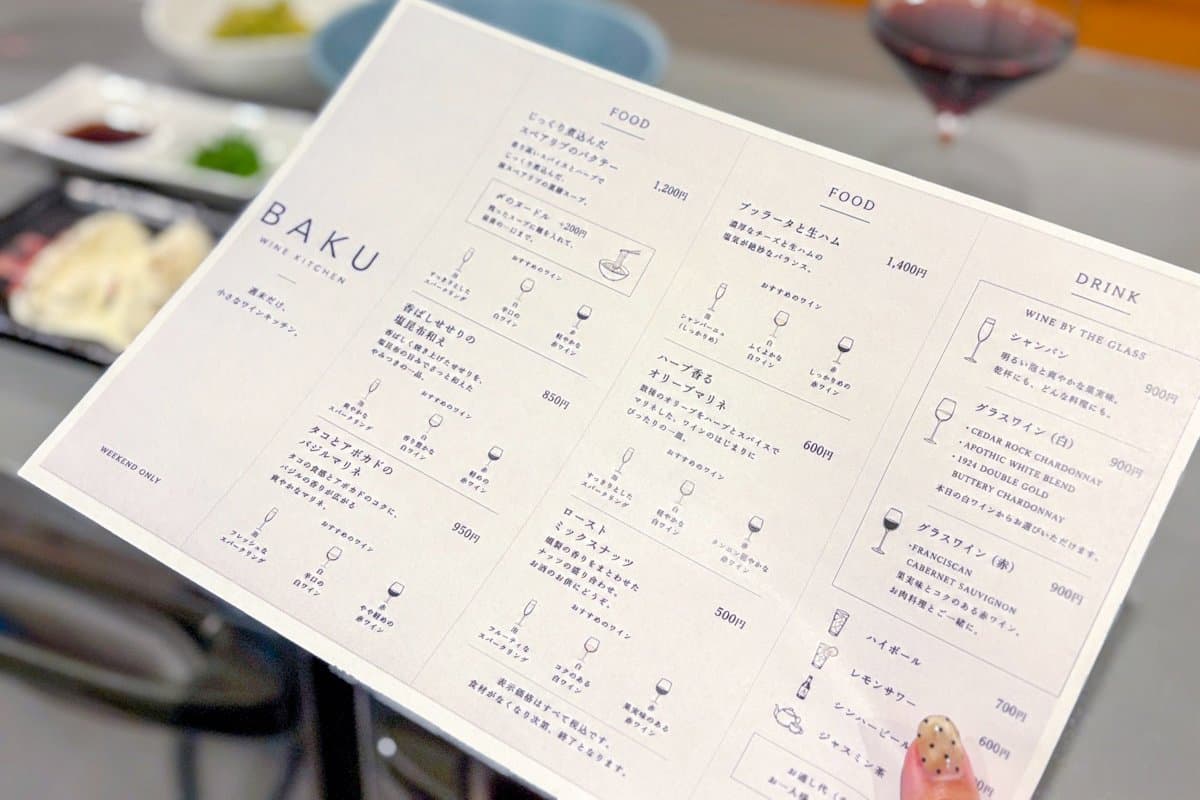 BAKU
WINE KITCHEN
週末だけ、
小さなワインキッチン。
WEEKEND ONLY
FOOD
じっくり煮込んだ
スペアリブのバクテー
1,200円
香り高いスパイスとハーブで
じっくり煮込んだ、
豚スペアリブの薬膳スープ。
〆のヌードル +200円
残ったスープに麺を入れて、
最後の一口まで。
おすすめのワイン
泡
すっきりとした
スパークリング
白
辛口の
白ワイン
赤
軽やかな
赤ワイン
香ばしせせりの
塩昆布和え
850円
香ばしく焼き上げたせせりを、
塩昆布の旨みでさっと和えた
やみつきの一品。
おすすめのワイン
泡
爽やかな
スパークリング
白
香り豊かな
白ワイン
赤
軽めの
赤ワイン
タコとアボカドの
バジルマリネ
950円
タコの食感とアボカドのコクに、
バジルの香りが広がる
爽やかなマリネ。
おすすめのワイン
泡
フレッシュな
スパークリング
白
辛口の
白ワイン
赤
やや軽めの
赤ワイン
FOOD
ブッラータと生ハム
1,400円
濃厚なチーズと生ハムの
塩気が絶妙なバランス。
おすすめのワイン
泡
シャンパーニュ
(しっかりめ)
白
ふくよかな
白ワイン
赤
しっかりめの
赤ワイン
ハーブ香る
オリーブマリネ
600円
数種のオリーブをハーブとスパイスで
マリネした、ワインのはじまりに
ぴったりの一皿。
おすすめのワイン
泡
すっきりとした
スパークリング
白
軽やかな
白ワイン
赤
タンニン穏やかな
赤ワイン
ロースト
ミックスナッツ
500円
燻製の香りをまとわせた
ナッツの盛り合わせ。
お酒のお供にどうぞ。
おすすめのワイン
泡
フルーティな
スパークリング
白
コクのある
白ワイン
赤
果実味のある
赤ワイン
表示価格はすべて税込です。
食材がなくなり次第、終了となります。
DRINK
WINE BY THE GLASS
シャンパン
900円
明るい泡と爽やかな果実味。
乾杯にも、どんな料理にも。
グラスワイン(白)
900円
・CEDAR ROCK CHARDONNAY
・APOTHIC WHITE BLEND
・1924 DOUBLE GOLD
BUTTERY CHARDONNAY
本日の白ワインからお選びいただけます。
グラスワイン(赤)
900円
・FRANCISCAN
CABERNET SAUVIGNON
果実味とコクのある赤ワイン。
お肉料理とご一緒に。
ハイボール
700円
レモンサワー
600円
シンハービール
ジャスミン茶
お通し代
お一人様